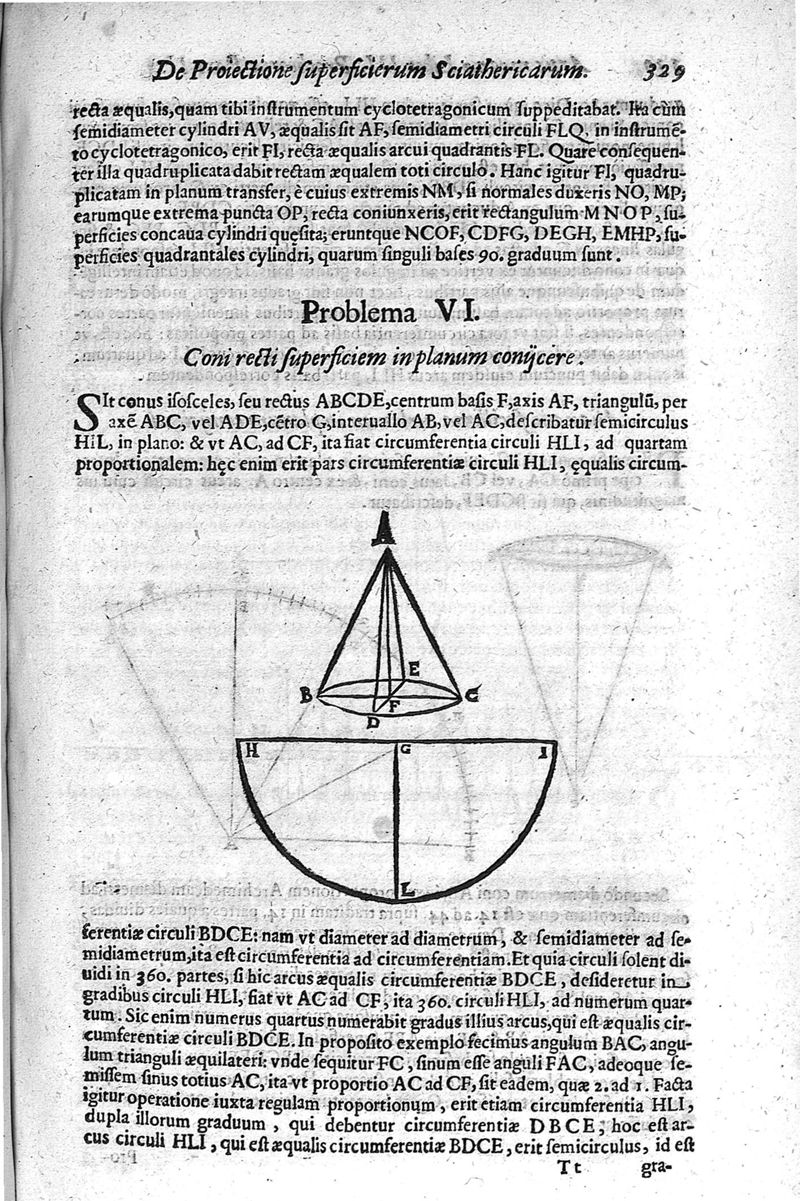 De Proiectione superficierum Sciathericarum. 329
recta æqualis, quam tibi instrumentum cyclotetragonicum suppeditabat. Ita cùm
semidiameter cylindri AV, æqualis sit AF, semidiametri circuli FLQ, in instrumē-
to cyclotetragonico, erit FI, recta æqualis arcui quadrantis FL. Quare consequen-
ter illa quadruplicata dabit rectam æqualem toti circulo. Hanc igitur FI, quadru-
plicatam in planum transfer, è cuius extremis NM, si normales duxeris NO, MP;
earumque extrema puncta OP, recta coniunxeris, erit rectangulum MNOP, su-
perficies concaua cylindri quęsita; eruntque NCOF, CDFG, DEGH, EMHP, su-
perficies quadrantales cylindri, quarum singuli bases 90. graduum sunt.
Problema VI.
Coni recti superficiem in planum conijcere.
SIt conus isosceles, seu rectus ABCDE, centrum basis F, axis AF, triangulū, per
axē ABC, vel ADE, cētro G, interuallo AB, vel AC, describatur semicirculus
HIL, in plano: & vt AC, ad CF, ita fiat circumferentia circuli HLI, ad quartam
proportionalem: hęc enim erit pars circumferentiæ circuli HLI, ęqualis circum-
A
E
B
F
C
D
H
G
I
L
ferentiæ circuli BDCE: nam vt diameter ad diametrum, & semidiameter ad se-
midiametrum, ita est circumferentia ad circumferentiam. Et quia circuli solent di-
uidi in 360. partes, si hic arcus æqualis circumferentiæ BDCE, desideretur in
gradibus circuli HLI, fiat vt AC ad CF, ita 360. circuli HLI, ad numerum quar-
tum. Sic enim numerus quartus numerabit gradus illius arcus, qui est æqualis cir-
cumferentiæ circuli BDCE. In proposito exemplo fecimus angulum BAC, angu-
lum trianguli æquilateri: vnde sequitur FC, sinum esse anguli FAC, adeoque se-
missem sinus totius AC, ita vt proportio AC ad CF, sit eadem, quæ 2. ad 1. Facta
igitur operatione iuxta regulam proportionum, erit etiam circumferentia HLI,
dupla illorum graduum, qui debentur circumferentiæ DBCE; hoc est ar-
cus circuli HLI, qui est æqualis circumferentiæ BDCE, erit semicirculus, id est
Tt gra-